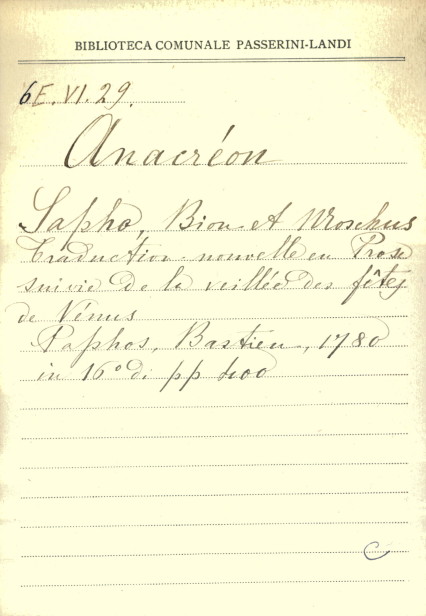 BIBLIOTECA COMUNALE PASSERINI-LANDI
6E.VI.29.
Anacréon
Sapho, Bion et Moschus
Traduction nouvelle en Prose
suivie de la veillée des fêtes
de Vénus
Paphos, Bastien, 1780
in 16° di pp 400
C